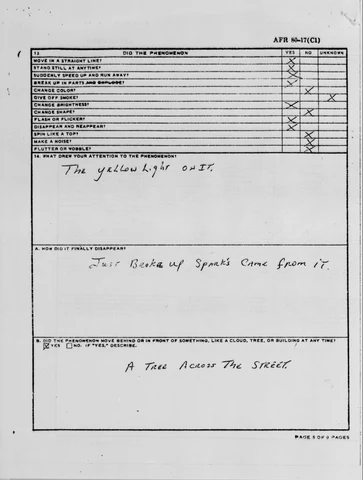 AFR 80-17(C1)
13. DID THE PHENOMENON YES NO UNKNOWN
MOVE IN A STRAIGHT LINE? X
STAND STILL AT ANYTIME? X
SUDDENLY SPEED UP AND RUN AWAY? X
BREAK UP IN PARTS AND EXPLODE? X
CHANGE COLOR? X
GIVE OFF SMOKE? X
CHANGE BRIGHTNESS? X
CHANGE SHAPE? X
FLASH OR FLICKER? X
DISAPPEAR AND REAPPEAR? X
SPIN LIKE A TOP? X
MAKE A NOISE? X
FLUTTER OR WOBBLE? X
14. WHAT DREW YOUR ATTENTION TO THE PHENOMENON?
The yellow Light on IT.
A. HOW DID IT FINALLY DISAPPEAR?
Just Broke up Spark's Came from IT.
B. DID THE PHENOMENON MOVE BEHIND OR IN FRONT OF SOMETHING, LIKE A CLOUD, TREE, OR BUILDING AT ANY TIME?
X YES NO. IF "YES," DESCRIBE.
A TREE ACROSS THE STREET.
PAGE 5 OF 9 PAGES